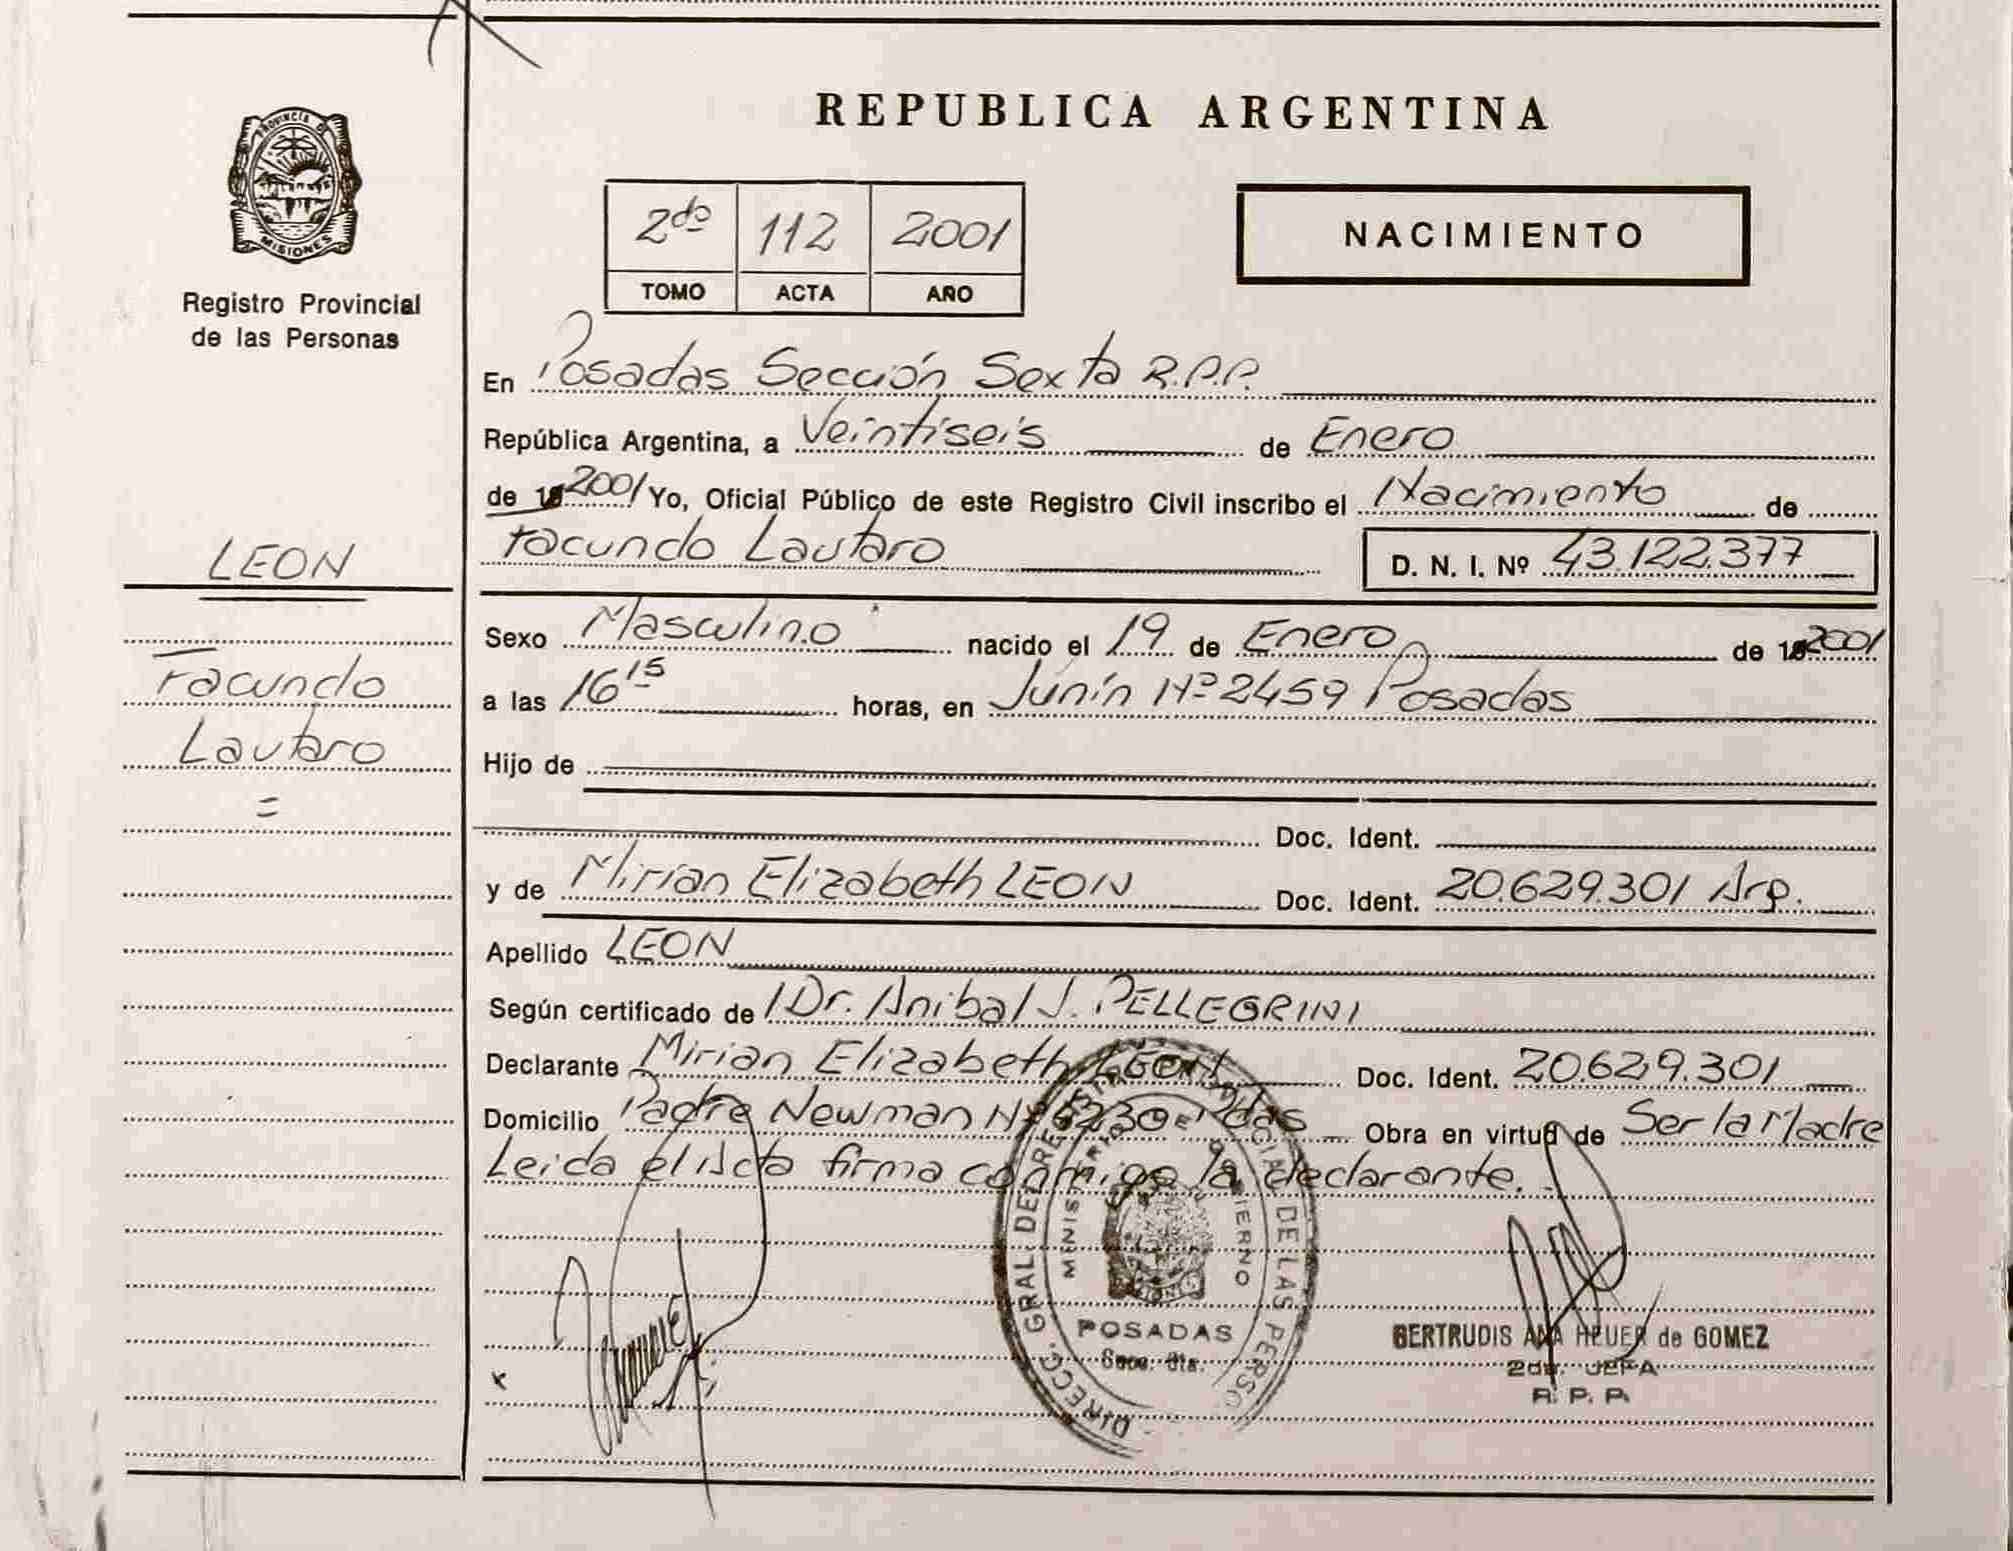 REPUBLICA ARGENTINA
PROVINCIA DE
MISIONES
Registro Provincial
de las Personas
2do 112 2001
TOMO ACTA AÑO
NACIMIENTO
En Posadas Sección Sexta R.P.P.
República Argentina, a Veintiseis de Enero
de 19 2001 Yo, Oficial Público de este Registro Civil inscribo el Nacimiento de
Facundo Lautaro D. N. I. Nº 43.122.377
LEON
Facundo
Lautaro
=
Sexo Masculino nacido el 19 de Enero de 19 2001
a las 16 15 horas, en Junín Nº 2459 Posadas
Hijo de
Doc. Ident.
y de Mirian Elizabeth LEON Doc. Ident. 20.629.301 Arg.
Apellido LEON
Según certificado de l Dr. Anibal J. PELLEGRINI
Declarante Mirian Elizabeth LEON Doc. Ident. 20.629.301
Domicilio Padre Newman Nº 6230 Pdas Obra en virtud de Ser la Madre
Leida el Acta firma conmigo la declarante.
DIRECC. GRAL. DEL REGISTRO PROVINCIAL DE LAS PERSO
MINISTERIO DE GOBIERNO
MISIONES
POSADAS
Secc. 6ta.
x
GERTRUDIS ANA HEUER de GOMEZ
2da. JEFA
R. P. P.